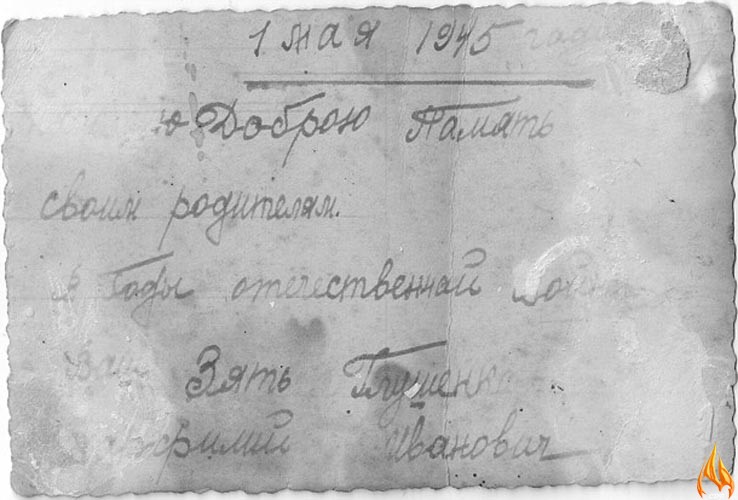 1 мая 1945 года
ю Доброю Память
своим родителям.
в Годы отечественнай Войны
Ваш Зять Глушенко
Иванович